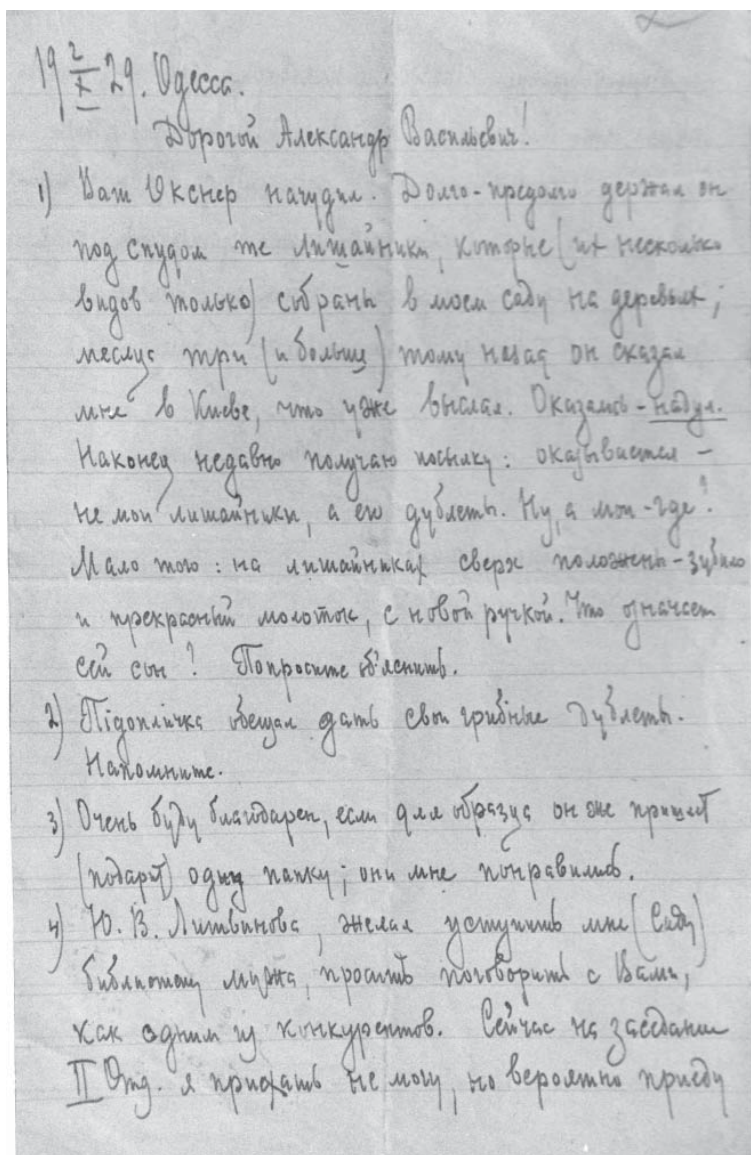 19 2/X 29. Одесса.
Дорогой Александр Васильевич!
1) Ваш Окснер начудил. Долго-предолго держал он
под спудом те лишайники, которые (их несколько
видов только) собраны в моем саду на деревьях;
месяца три (и больше) тому назад он сказал
мне в Киеве, что уже выслал. Оказалось - надул.
Наконец недавно получаю посылку: оказывается -
не мои лишайники, а его дублеты. Ну, а мои - где?
Мало того: на лишайниках сверх положены - зубило
и прекрасный молоток, с новой ручкой. Что означает
сей сон? Попросите об'яснить.
2) Підоплічка обещал дать свои грибные дублеты.
Напомните.
3) Очень буду благодарен, если для образца он же пришлет
(подарит) одну папку; они мне понравились.
4) Ю. В. Литвинова, желая уступить мне (Саду)
библиотеку мужа, просить поговорить с Вами,
как одним из конкурентов. Сейчас на заседание
II Отд. я приехать не могу, но вероятно приеду